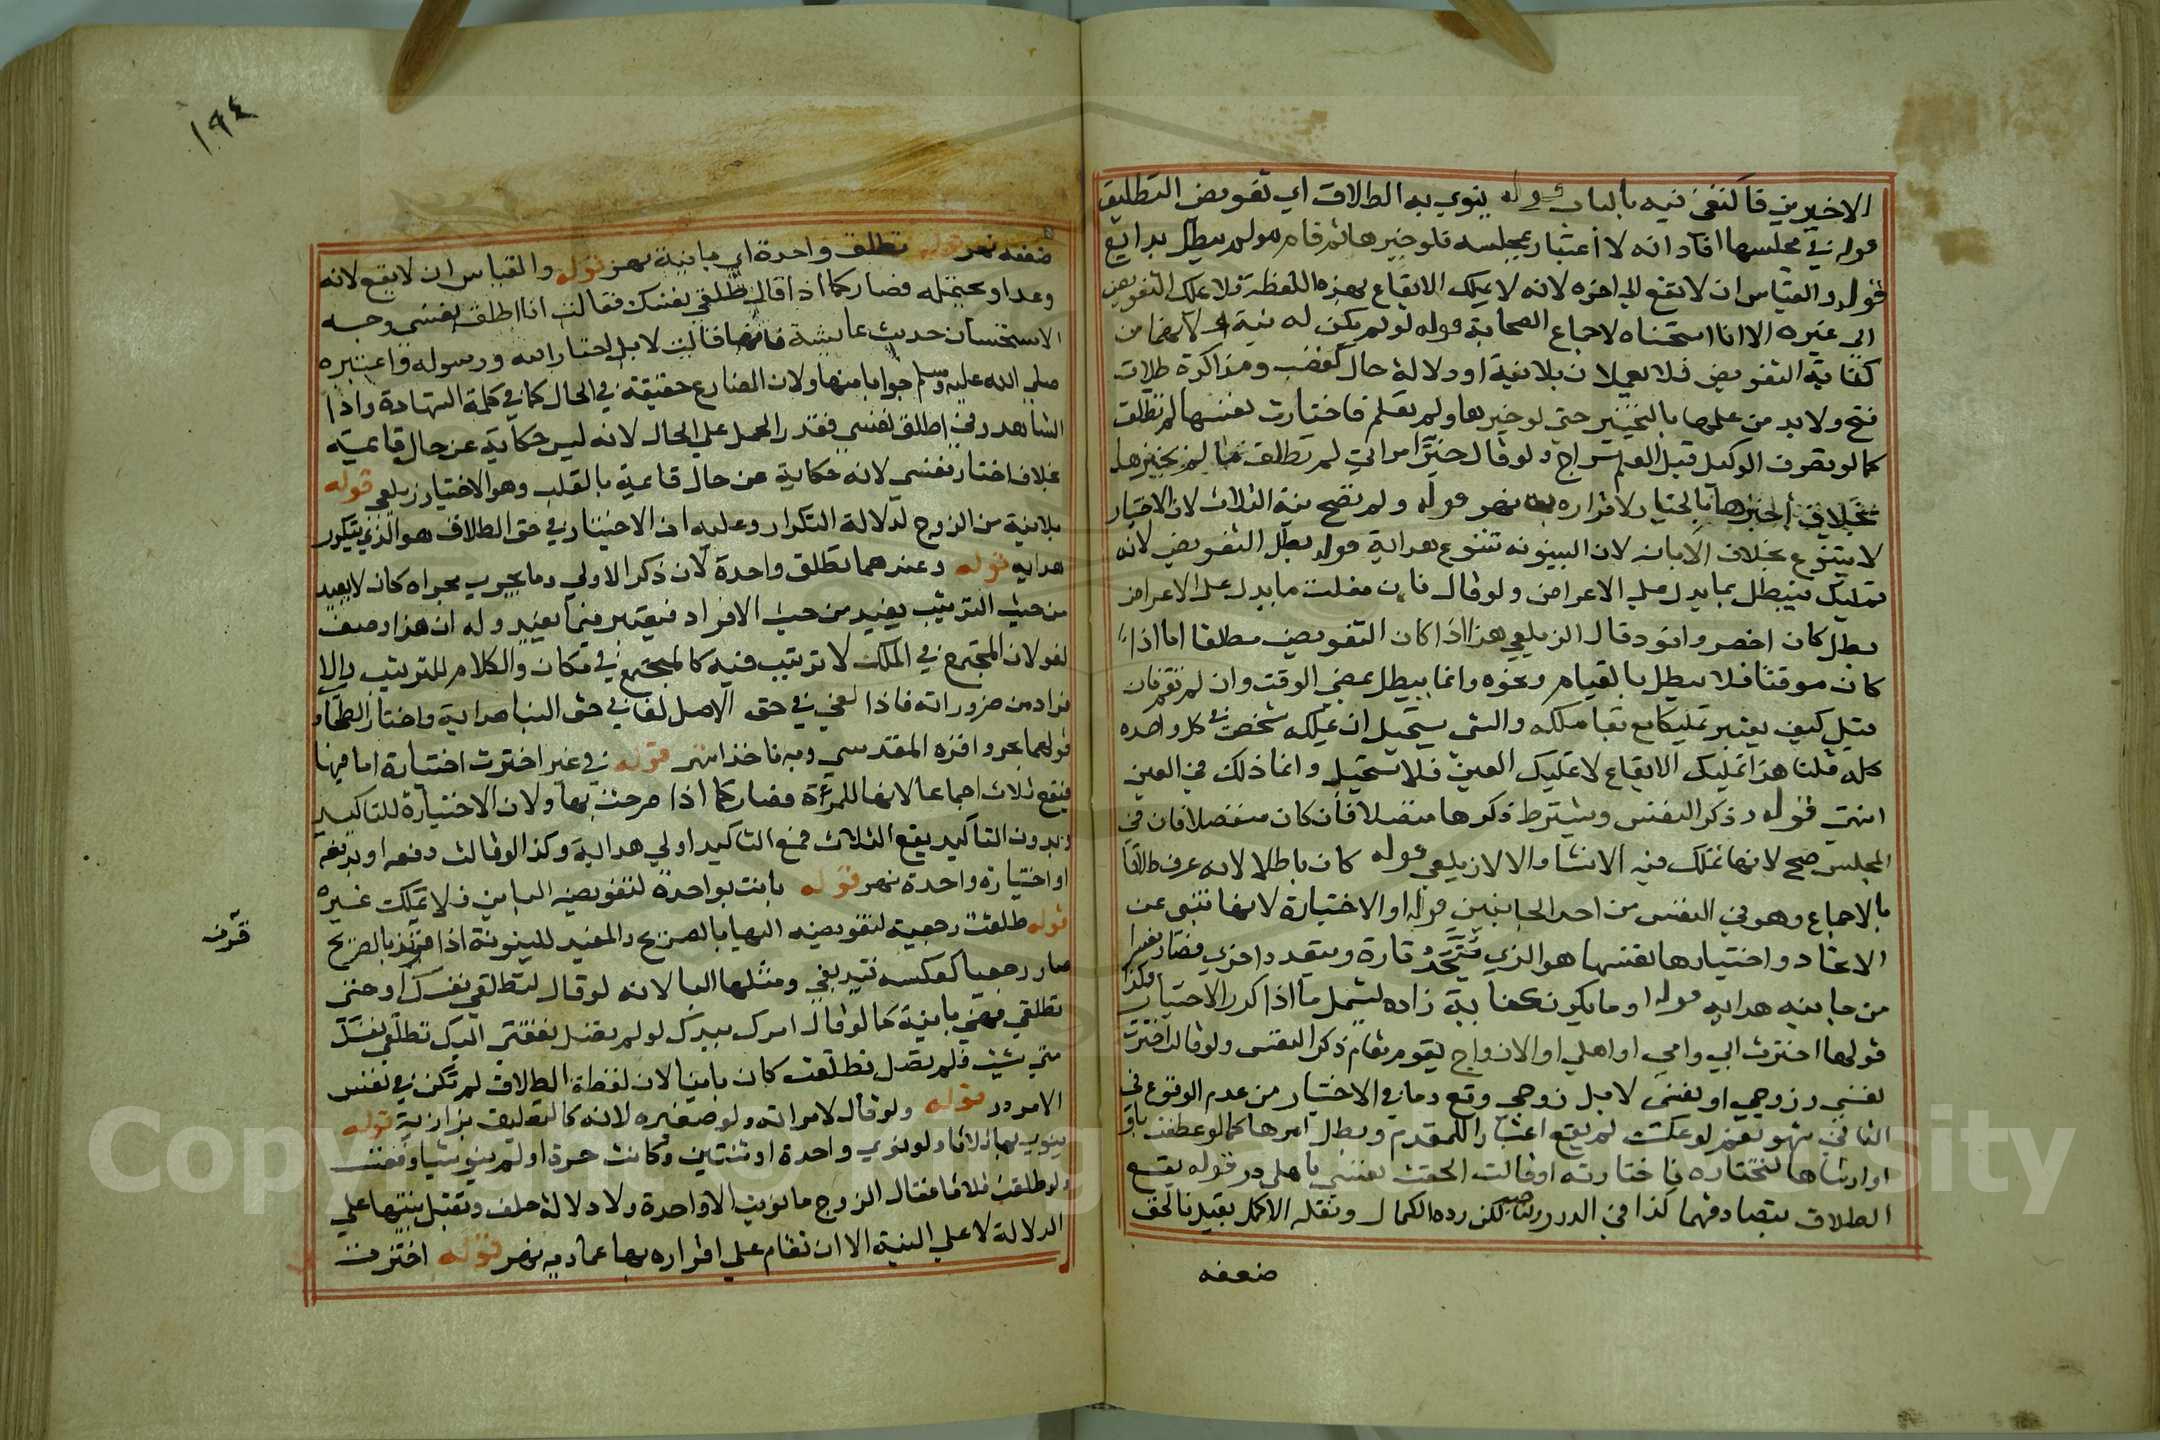 الاخيرين فاكتفى فيه بالباب قوله ينوي به الطلاق اي تفويض التطليق
قوله في مجلسها افاد انه لا اعتبار بمجلسه فلو خيرها ثم قام هو لم يبطل بدايع
قوله والقياس ان لا تقع الى اخره لانه لا يملك الايقاع بهذه اللفظة فلا يملك التفويض
الى غيره الا انا استحسناه لاجماع الصحابة قوله لو لم يكن له نية لانهما من
كناية التفويض فلا يعملان بلا نية او دلالة حال كغضب ومذاكرة طلاق
فتح ولا بد من علمها بالتخيير حتى لو خيرها ولم تعلم فاختارت نفسها لم تطلق
كما لو تصرف الوكيل قبل العلم سراج ولو قال خير امراتي لم تطلق ما لم يخيرها
بخلاف اخبرها بالخيار لاقراره به نهر قوله ولم تصح نية الثلاث لان الاختيار
لا يتنوع بخلاف الابانه لان البينونه تتنوع هداية قوله بطل التفويض لانه
تمليك فيبطل بما يدل على الاعراض ولو قال فان فعلت ما يدل على الاعراض
بطل كان اخصر واعود قال الزيلعي هذا اذا كان التفويض مطلقا اما اذا
كان موقتا فلا يبطل بالقيام ونحوه وانما يبطل بمضي الوقت وان لم تعلم فان
قيل كيف يعتبر تمليكا مع بقا ملكه والشي يستحيل ان يملكه شخصان في كل واحده
كله قلنا هذا تمليك الايقاع لا تمليك العين فلا يستحيل وانما ذلك في العين
انتهى قوله وذكر النفس ويشترط ذكرها متصلا فان كان منفصلا فان في
المجلس صح لانها تملك فيه الانشا والا لا زيلعي قوله كان باطلا لانه عرف طلاقا
بالاجماع وهو في النفس من احد الجانبين قوله او الاختيارة لانها تنبى عن
الاتحاد واختيارها نفسها هو الذي يتحد تارة ويتعدد اخرى فصار مفسرا
من جانبه هدايه قوله او ما يكون كناية زاده ليشمل ما اذا كرر الاختيار وكذا
قولها اخترت ابي وامي او اهلي او الازواج يقوم مقام ذكر النفس ولو قالت اخترت
نفسي وزوجي او نفسي لا بل زوجي وقع وما في الاختيار من عدم الوقوع في
الثاني سهو نعم لو عكست لم يقع اعتبارا للمقدم وبطل امرها كما لو عطفت باو
او ارشاها لتختاره فاختارته او قالت الحقت نفسي باهلي در قوله يقع
الطلاق بتصادقهما كذا في الدرر لكن رده الكمال ونقله الاكمل بقيل فالحق
ضعفه
١٩٤
ضعفه نهر قوله تطلق واحدة اي باينة نهر قوله والقياس ان لا يقع لانه
وعد او يحتمله فصار كما اذا قال طلقي نفسك فقالت انا اطلق نفسي وجه
الاستحسان حديث عايشة فانها قالت لا بل اختار الله ورسوله واعتبره
صلى الله عليه وسلم جوابا منها ولان المضارع حقيقة في الحال كما في كلمة الشهادة واذا
الشاهد وفي اطلق نفسي فقدر الحمل على الحال لانه ليس حكاية عن حال قايمة
بخلاف اختار نفسي لانه حكاية عن حال قايمة بالقلب وهو الاختيار زيلعي قوله
بلا نية من الزوج لدلالة التكرار وعليه اذ الاختيار في حق الطلاق هو الذي يتكرر
هدايه قوله وعندهما تطلق واحدة لان ذكر الاولى وما يجري مجراه كان لا يفيد
من حيث الترتيب يفيد من حيث الافراد فيعتبر فيما يفيد وله ان هذا وصف
لغو لان المجتمع في الملك لا ترتيب فيه كالمجتمع في مكان والكلام للترتيب والا
فراد من ضروراته فاذا لغى في حق الاصل لغا في حق البنا هداية واختار الطحاوي
قولهما بحر واقره المقدسي وبه ناخذ نهر قوله في غير اخترت اختيارة اما فيها
فيقع ثلاث اجماعا لانها للمرة فصار كما اذا صرحت بها ولان الاختيارة للتاكيد
وبدون التاكيد يقع الثلاث فمع التاكيد اولى هداية وكذا لو قالت دفعه او بدفعه
او اختيارة واحدة نهر قوله بانت بواحدة لتفويضه الباين فلا تملك غيره
قوله طلقت رجعية لتفويضه اليها بالصريح والمفيد للبينونة اذا قرن بالصريح
قرن
صار رجعيا كعكسه قيد بفي ومثلها البا لانه لو قال لتطلقي نفسك او حتى
تطلقي فهي باينة كما لو قال امرك بيدك لو لم تصل نفقتي اليك تطلقي نفسك
متى شيت فلم تصل فطلقت كان باينا لان لفظة الطلاق لم تكن في نفس
الامر در قوله ولو قال لامراته ولو صغيره لانه كالتعليق بزازية قوله
ينوي بها ثلاثا ولو نوى واحدة او ثنتين وكانت حرة او لم ينو شيا وقعت
ولو طلقت ثلاثا فقال الزوج ما نويت الا واحدة ولا دلالة حلف وتقبل بينتها على
الدلالة لا على النية الا ان تقام على اقراره بها عماديه نهر قوله اخترت